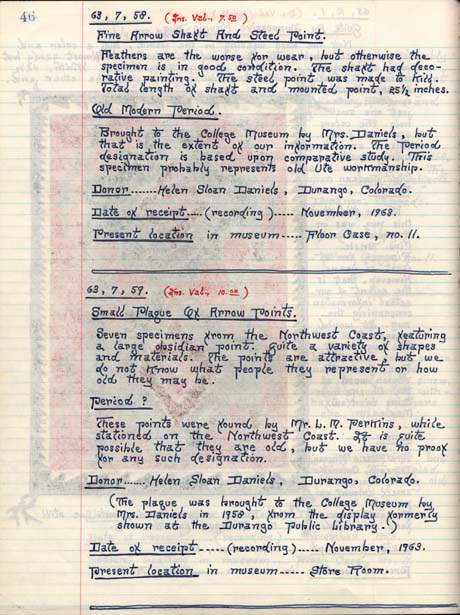 46
63, 7, 58. (Ins. Val., 7.50)
Fine Arrow Shaft And Steel Point.
Feathers are the worse for wear, but otherwise the
specimen is in good condition. The shaft had deco-
rative painting. The steel point was made to kill.
Total length of shaft and mounted point, 25½ inches.
Old Modern Period.
Brought to the College Museum by Mrs. Daniels, but
that is the extent of our information. The period
designation is based upon comparative study. This
specimen probably represents old Ute workmanship.
Donor.......Helen Sloan Daniels, Durango, Colorado.
Date of receipt....(recording)..... November, 1963.
Present location in museum..... Floor Case, no. 11.
63, 7, 59. (Ins. Val., 10.00)
Small Plaque Of Arrow Points.
Seven specimens from the Northwest Coast, featuring
a large obsidian point. Quite a variety of shapes
and materials. The points are attractive, but we
do not know what people they represent or how
old they may be.
Period?
These points were found by Mr. L. M. Perkins, while
stationed on the Northwest Coast. It is quite
possible that they are old, but we have no proof
for any such designation.
Donor.......Helen Sloan Daniels, Durango, Colorado.
(The plaque was brought to the College Museum by
Mrs. Daniels in 1958, from the display formerly
shown at the Durango Public Library.)
Date of receipt.....(recording)..... November, 1963.
Present location in museum..... Store Room.